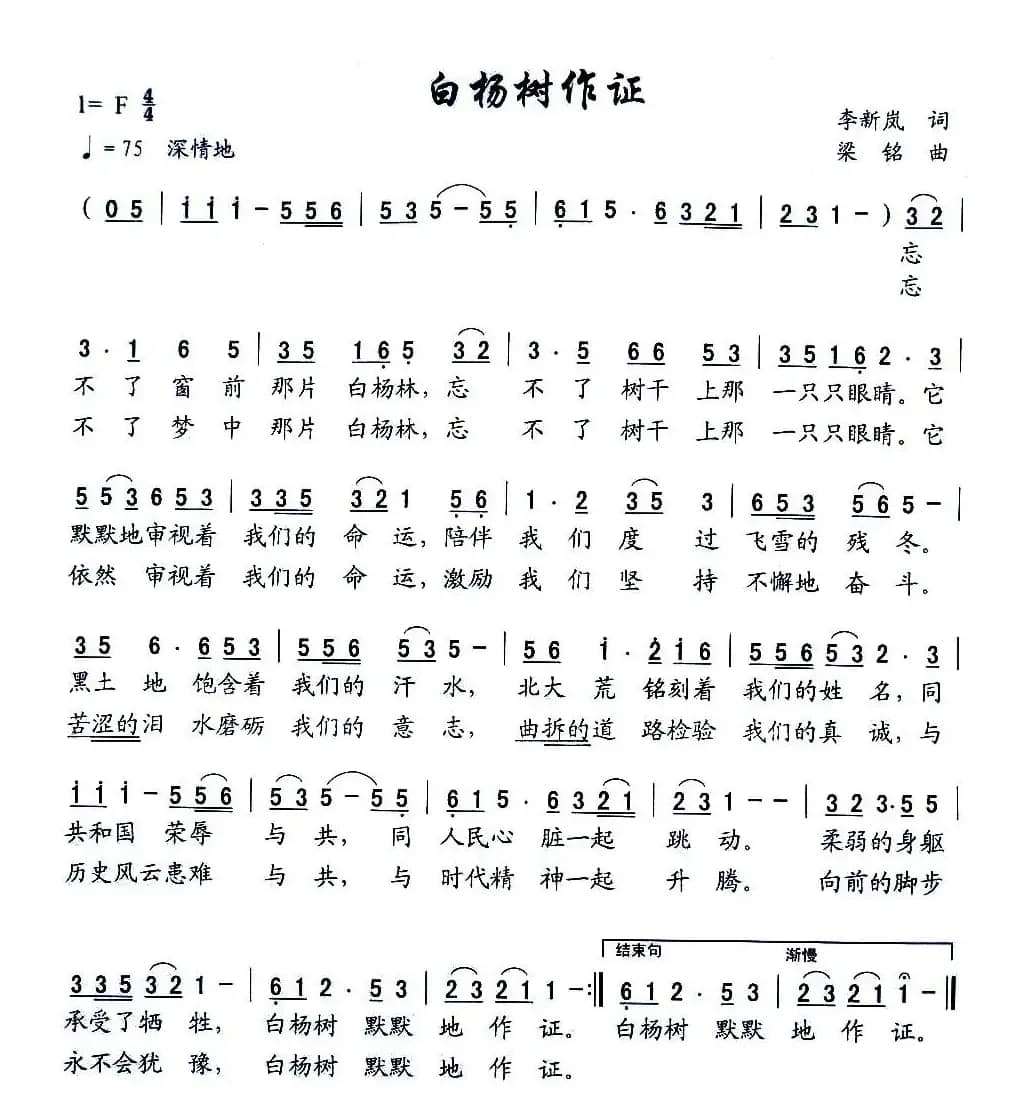 白杨树作证
1= F 4/4
♩= 75 深情地
李新岚 词
梁 铭 曲
( 0 5 | i i i - 5 5 6 | 5 3 5 - 5 5 | 6 1 5 · 6 3 2 1 | 2 3 1 - ) 3 2 |
忘
忘
3 · 1 6 5 | 3 5 1 6 5 3 2 | 3 · 5 6 6 5 3 | 3 5 1 6 2 · 3 |
不 了 窗 前 那 片 白杨林，忘 不 了 树干 上那 一只只眼睛。它
不 了 梦 中 那 片 白杨林，忘 不 了 树干 上那 一只只眼睛。它
5 5 3 6 5 3 | 3 3 5 3 2 1 5 6 | 1 · 2 3 5 3 | 6 5 3 5 6 5 - |
默默地审视着 我们的 命 运，陪伴 我 们 度 过 飞雪的 残 冬。
依然 审视着 我们的 命 运，激励 我 们 坚 持 不懈地 奋 斗。
3 5 6 · 6 5 3 | 5 5 6 5 3 5 - | 5 6 i · 2 i 6 | 5 5 6 5 3 2 · 3 |
黑土 地 饱含着 我们的 汗 水， 北大 荒 铭刻着 我们的姓 名，同
苦涩的泪 水磨砺 我们的 意 志， 曲拆的道 路检验 我们的真 诚，与
i i i - 5 5 6 | 5 3 5 - 5 5 | 6 1 5 · 6 3 2 1 | 2 3 1 - - | 3 2 3 · 5 5 |
共和国 荣辱 与 共， 同 人民心 脏一起 跳 动。 柔弱的身躯
历史风云患难 与 共， 与 时代精 神一起 升 腾。 向前的脚步
结束句 渐慢
3 3 5 3 2 1 - | 6 1 2 · 5 3 | 2 3 2 1 1 - :‖ 6 1 2 · 5 3 | 2 3 2 1 1 - ‖
承受了牺 牲， 白杨树 默默 地 作 证。 白杨树 默默 地 作 证。
永不会犹 豫， 白杨树 默默 地 作 证。